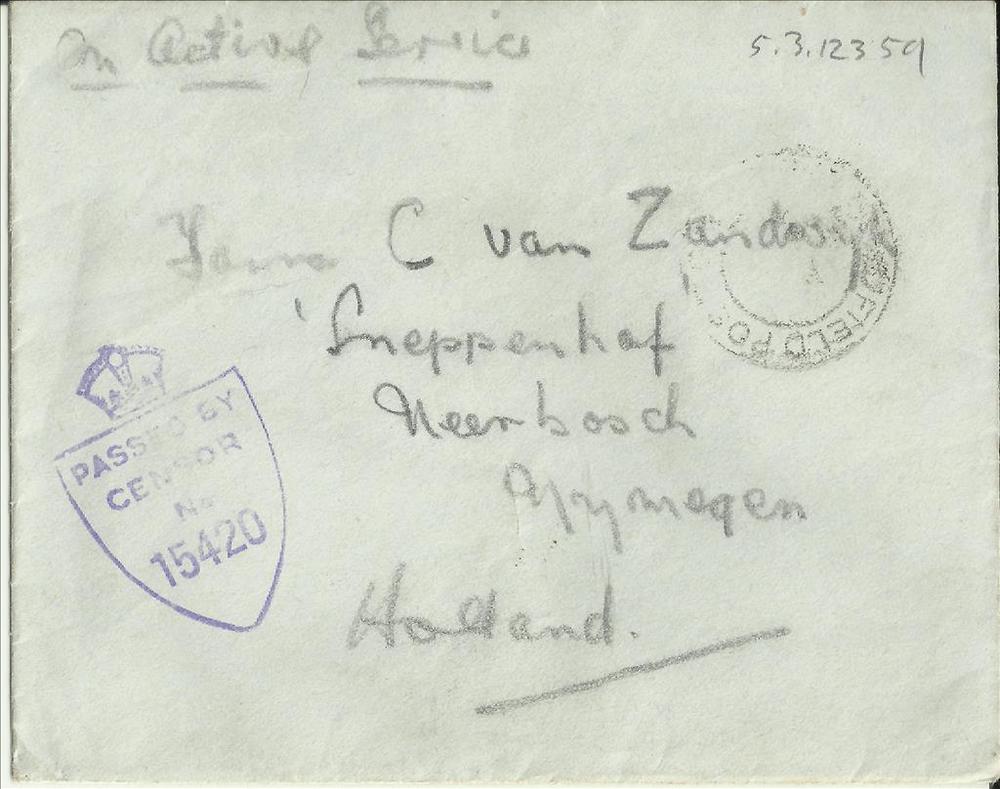 On Active Service
5.3.12359
C van
'Sneppenhof'
Neerbosch
Nymegen
Holland.
FIELD PO
PASSED BY
CENSOR
No
15420